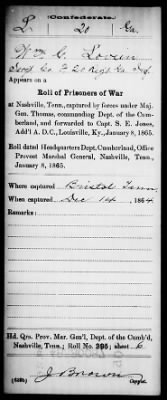 (Confederate.)
L. 20 Ga.
Wm. C. Lovein
Co. F 20 Regt. Ga. Inf.
Appears on a
Roll of Prisoners of War
at Nashville, Tenn., captured by forces under Maj.
Gen. Thomas, commanding Dept. of the Cum-
berland, and forwarded to Capt. S. E. Jones,
Add'l A. D. C., Louisville, Ky., January 8, 1865.
Roll dated Headquarters Dept. Cumberland, Office
Provost Marshal General, Nashville, Tenn.,
January 8, 1865.
Where captured Bristol Tenn
When captured Dec 14, 1864
Remarks:
Hd. Qrs. Prov. Mar. Gen'l, Dept. of the Cumb'd,
Nashville, Tenn.; Roll No. 295; sheet 6
J Brown
Copyist.